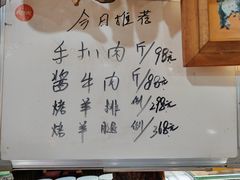 今日推荐
手扒肉 斤/98元
酱牛肉 斤/88元
烤羊排 例/298元
烤羊腿 例/368元